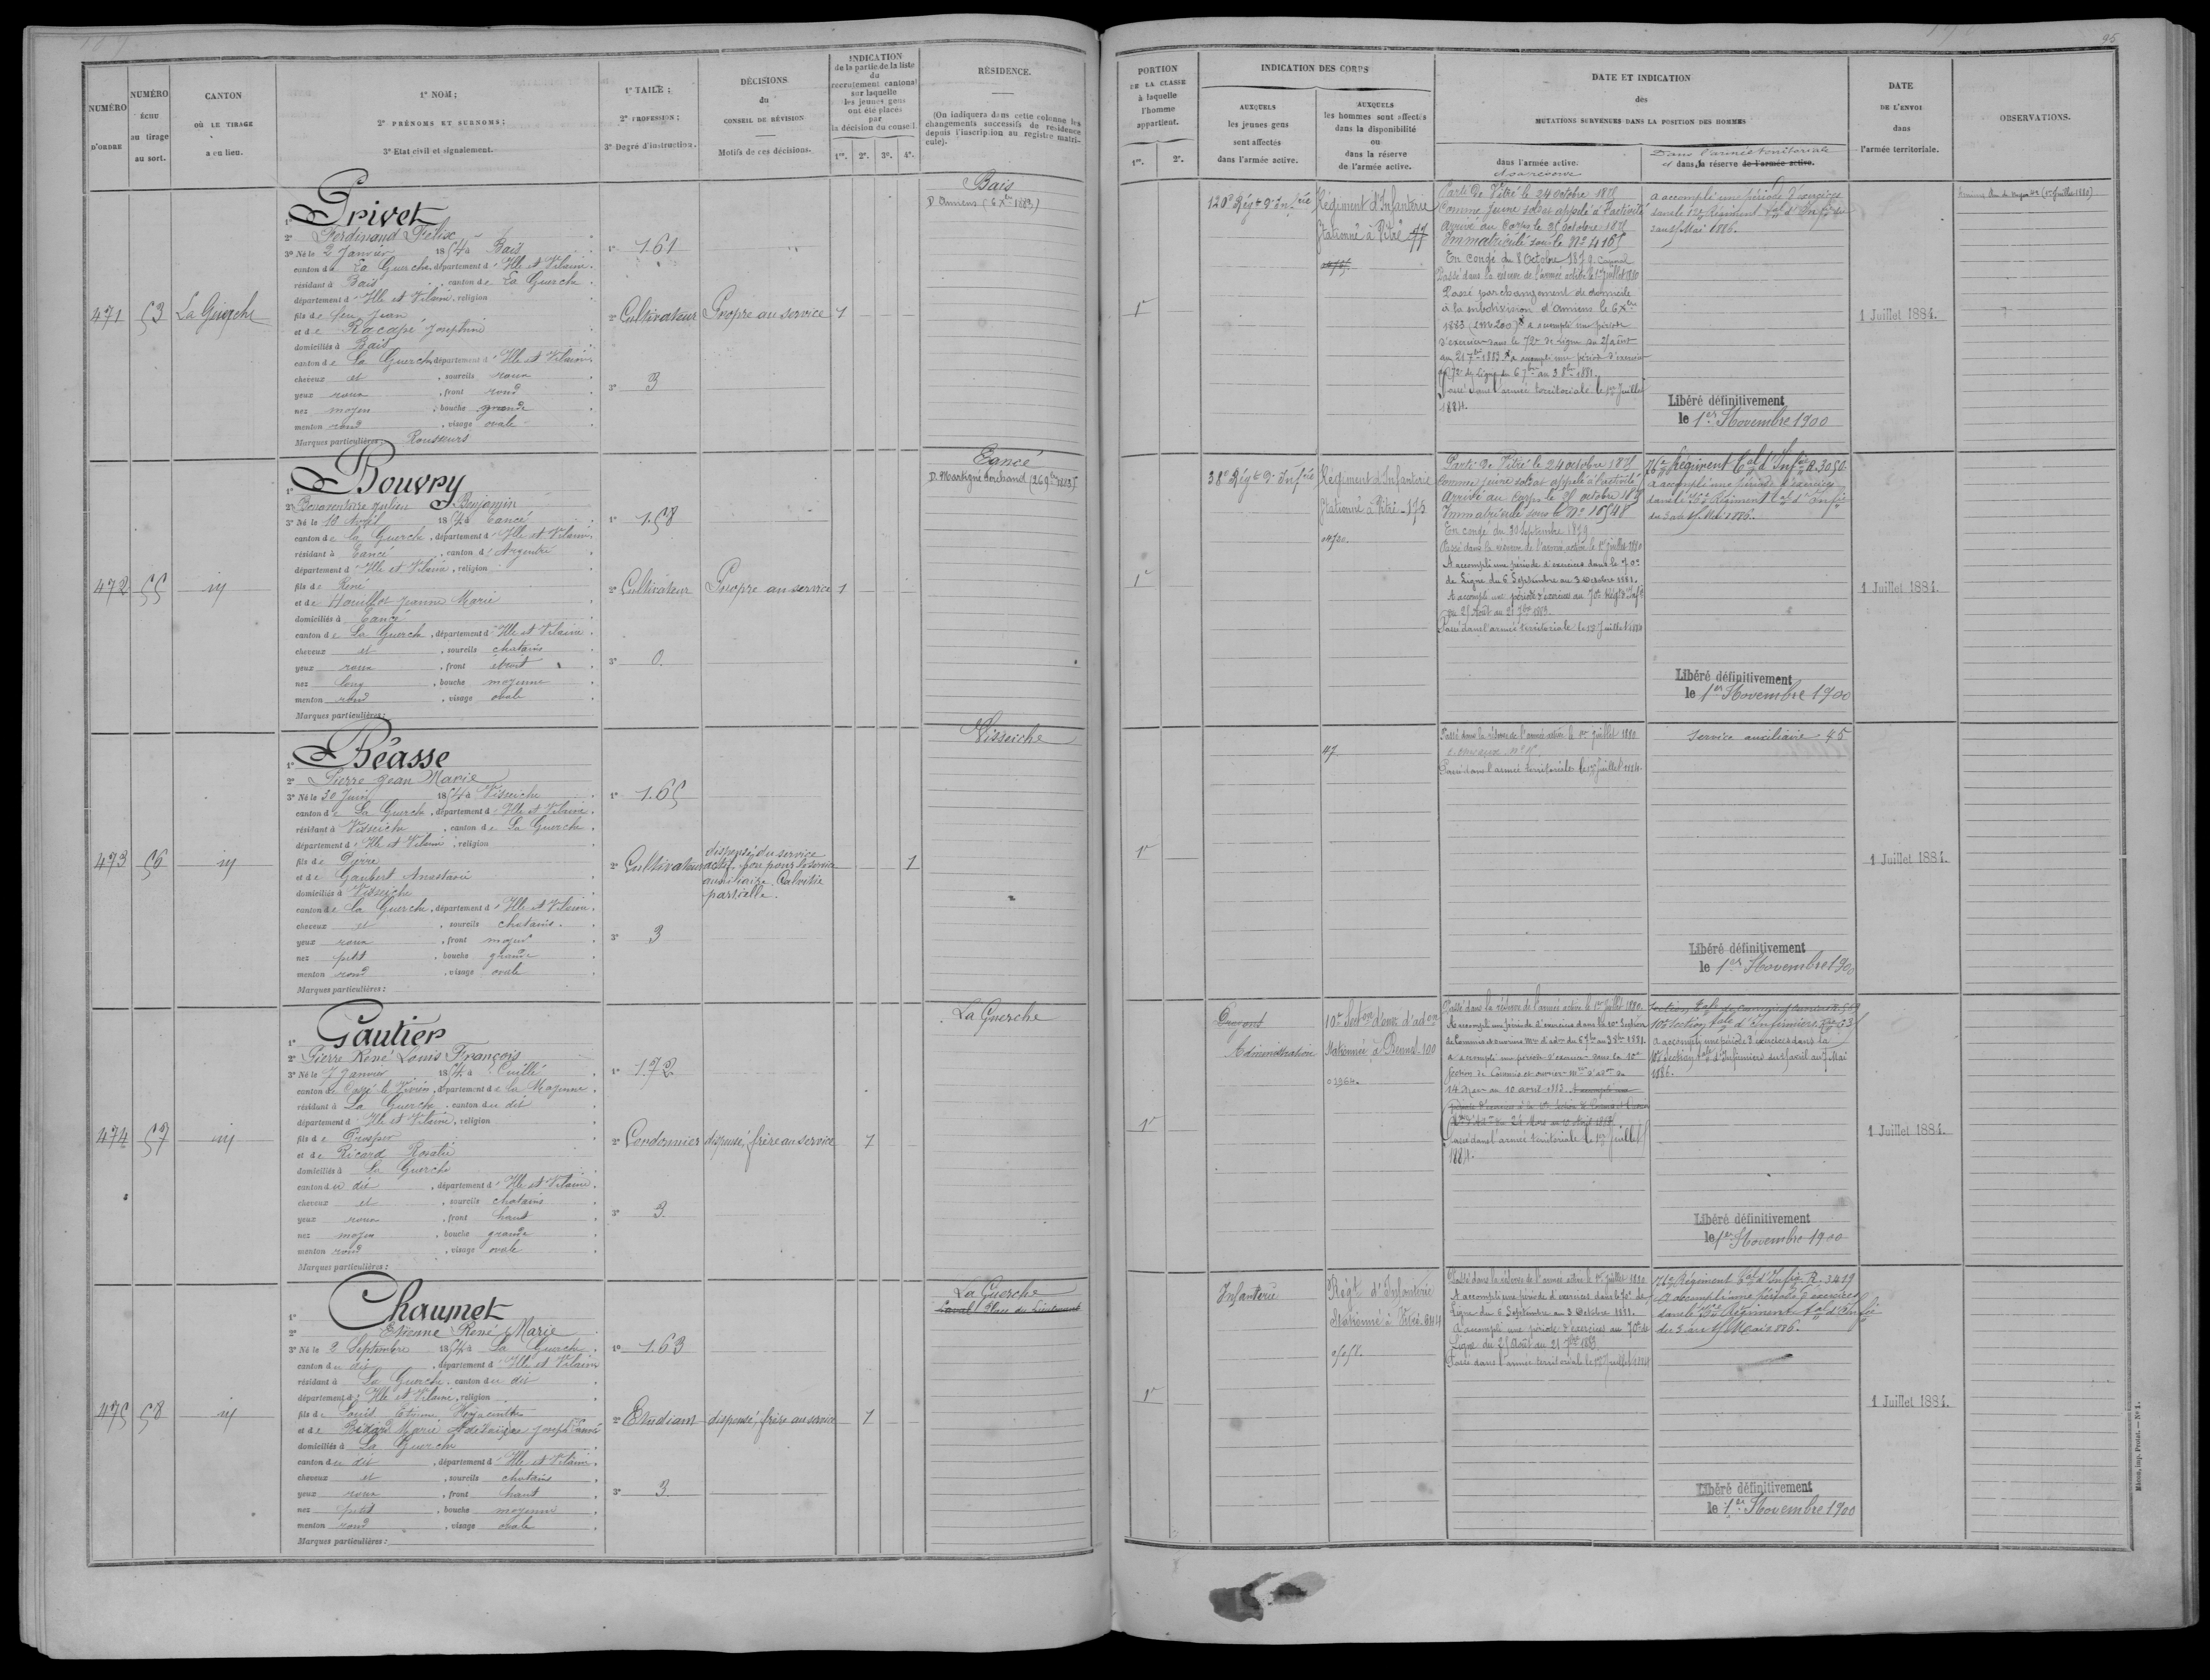 95
NUMÉRO D'ORDRE
NUMÉRO échu au tirage au sort.
CANTON OÙ LE TIRAGE a eu lieu.
1° NOM;
2° PRÉNOMS ET SURNOMS;
3° Etat civil et signalement.
1° TAILLE;
2° PROFESSION;
3° Degré d'instruction.
DÉCISIONS du CONSEIL DE RÉVISION
Motifs de ces décisions.
INDICATION de la partie de la liste du recrutement cantonal sur laquelle les jeunes gens ont été placés par la décision du conseil.
1re. 2e. 3e. 4e.
RÉSIDENCE.
(On indiquera dans cette colonne les changements successifs de résidence depuis l'inscription au registre matricule).
PORTION DE LA CLASSE à laquelle l'homme appartient.
1re. 2e.
INDICATION DES CORPS
AUXQUELS les jeunes gens sont affectés dans l'armée active.
AUXQUELS les hommes sont affectés dans la disponibilité ou dans la réserve de l'armée active.
DATE ET INDICATION des MUTATIONS SURVENUES DANS LA POSITION DES HOMMES
dans l'armée active.
Dans l'armée territoriale
dans la réserve de l'armée active.
DATE DE L'ENVOI dans l'armée territoriale.
OBSERVATIONS.
471
53
La Guerche
1° Privet
2° Ferdinand Félix
3° Né le 2 Janvier 1854 à Bais
canton de La Guerche département d'Ille et Vilaine
résidant à Bais, canton de La Guerche
département d'Ille et Vilaine, religion
fils de feu Jean
et de Racapé Joséphine
domiciliés à Bais
canton de La Guerche département d'Ille et Vilaine
cheveux et, sourcils roux
yeux roux, front rond
nez moyen, bouche grande
menton rond, visage ovale
Marques particulières: Rousseurs
1° 1.61
2° Cultivateur
3° 3
Propre au service
1
Bais
D. Amiens (6 Xbre 1883)
1re
120e Régt d'Infrie
Régiment d'Infanterie
Stationné à Vitré
Parti de Vitré le 24 octobre 1875
comme jeune soldat appelé à l'activité
Arrivé au Corps le 25 octobre 1875
Immatriculé sous le No 4165
En congé du 8 Octobre 1879
Passé dans la réserve de l'armée active le 1er Juillet 1880
Passé par changement de domicile
à la subdivision d'Amiens le 6 Xbre
1883
a accompli une période
d'exercices dans le 72e de Ligne du 25 août
au 21 7bre 1883 a accompli une période d'exercices
72e de Ligne du 6 7bre au 3 8bre 1881
Passé dans l'armée territoriale le 1er Juillet
1884.
a accompli une période d'exercices
dans le 12e Régiment tal d'Infrie
Mai 1886.
Libéré définitivement
le 1er Novembre 1900
1 Juillet 1884.
472
55
id
1° Bouvry
2° Bonaventure Julien Benjamin
3° Né le 19 Avril 1854 à Eancé
canton de la Guerche, département d'Ille et Vilaine
résidant à Eancé, canton d'Argentré
département d'Ille et Vilaine, religion
fils de René
et de Houillot Jeanne Marie
domiciliés à Eancé
canton de La Guerche, département d'Ille et Vilaine
cheveux et, sourcils chatains
yeux roux, front étroit
nez long, bouche moyenne
menton rond, visage ovale
Marques particulières:
1° 1.58
2° Cultivateur
3° 0.
Propre au service
1
Eancé
D. Martigné Ferchaud (26 9bre 1883)
1re
38e Régt d'Infrie
Régiment d'Infanterie
Stationné à Vitré
Parti de Vitré le 24 octobre 1875
comme jeune soldat appelé à l'activité
Arrivé au Corps le 25 octobre 1875
Immatriculé sous le No 10548
En congé du 30 Septembre 1879
Passé dans la réserve de l'armée active le 1er Juillet 1880
A accompli une période d'exercices dans le 70e
de Ligne du 6 Septembre au 3 Octobre 1881.
A accompli une période d'exercices au 70e Régt d'Infie
du 25 Août au 21 7bre 1883.
Passé dans l'armée territoriale le 1er Juillet 1884
76e Régiment tal d'Infie R. 3050
a accompli une période d'exercices
dans le 76e Régiment tal d'Infie
du 3 au 15 Mai 1886.
Libéré définitivement
le 1er Novembre 1900
1 Juillet 1884.
473
56
id
1° Béasse
2° Pierre Jean Marie
3° Né le 30 Juin 1854 à Visseiche
canton de La Guerche, département d'Ille et Vilaine
résidant à Visseiche, canton de La Guerche
département d'Ille et Vilaine, religion
fils de Pierre
et de Gaubert Anastasie
domiciliés à Visseiche
canton de La Guerche, département d'Ille et Vilaine
cheveux et, sourcils chatains.
yeux roux, front moyen
nez petit, bouche grande
menton rond, visage ovale
Marques particulières:
1° 1.65
2° Cultivateur
3° 3
dispensé du service
actif, bon pour le service
auxiliaire. Calvitie
partielle.
1
Visseiche
1re
47
Passé dans la réserve de l'armée active le 1er Juillet 1880
Passé dans l'armée territoriale le 1er Juillet 1884.
Service auxiliaire 45
Libéré définitivement
le 1er Novembre 1900
1 Juillet 1884.
474
57
id
1° Gautier
2° Pierre René Louis François
3° Né le 7 Janvier 1854 à Cuillé
canton de Cossé le Vivien, département de la Mayenne
résidant à La Guerche, canton du dit
département d'Ille et Vilaine, religion
fils de Prosper
et de Ricard Rosalie
domiciliés à La Guerche
canton du dit, département d'Ille et Vilaine
cheveux et, sourcils chatains
yeux roux, front haut
nez moyen, bouche grande
menton rond, visage ovale
Marques particulières:
1° 1.72
2° Cordonnier
3° 3.
dispensé, frère au service
1
La Guerche
1re
Dragons
Administration
10e Section d'ouv. d'adon
Stationnée à Rennes 100
Passé dans la réserve de l'armée active le 1er Juillet 1880.
A accompli une période d'exercices dans la 10e Section
de Commis et ouvriers mres d'adon du 6 7bre au 3 8bre 1881.
a accompli une période d'exercices dans la 10e
Section de Commis et ouvriers mres d'adon du
14 Mars au 10 avril 1883.
Passé dans l'armée territoriale le 1er Juillet
1884.
10e Section tale d'Infirmiers
a accompli une période d'exercices dans la
10e Section tale d'Infirmiers
Mai
1886.
Libéré définitivement
le 1er Novembre 1900
1 Juillet 1884.
475
58
id
1° Chaumet
2° Etienne René Marie
3° Né le 2 Septembre 1854 à La Guerche
canton du dit, département d'Ille et Vilaine
résidant à La Guerche, canton du dit
département d'Ille et Vilaine, religion
fils de Louis Etienne Hyacinthe
et de Bidard Marie Adelaïde
domiciliés à La Guerche
canton du dit, département d'Ille et Vilaine
cheveux et, sourcils chatains
yeux roux, front haut
nez petit, bouche moyenne
menton rond, visage ovale
Marques particulières:
1° 1.63
2° Etudiant
3° 3.
dispensé, frère au service
1
La Guerche
Laval Place du
1re
Infanterie
Régt d'Infanterie
Stationné à Vitré
Passé dans la réserve de l'armée active le 1er Juillet 1880
A accompli une période d'exercices dans le 70e de
Ligne du 6 Septembre au 3 Octobre 1881.
A accompli une période d'exercices au 70e de
Ligne du 25 Août au 21 7bre 1883
Passé dans l'armée territoriale le 1er Juillet 1884
76e Régiment tal d'Infie R. 3419
a accompli une période d'exercices
dans le 76e Régiment tal d'Infie
du 3 au 15 Mai 1886.
Libéré définitivement
le 1er Novembre 1900
1 Juillet 1884.
Mâcon, imp. Protat. — No 1.